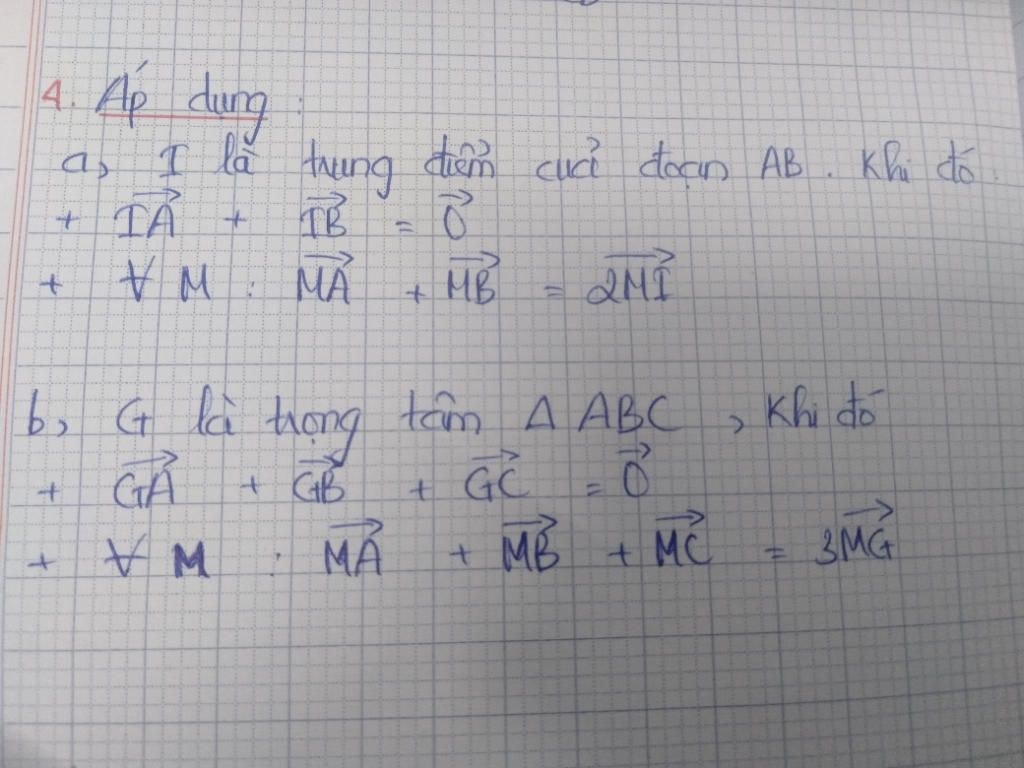 4. Áp dụng :
a, I là trung điểm của đoạn AB. Khi đó
+ $\overrightarrow{IA}$ + $\overrightarrow{IB}$ = $\overrightarrow{0}$
+ ∀ M : $\overrightarrow{MA}$ + $\overrightarrow{MB}$ = $\overrightarrow{2MI}$
b, G là trọng tâm Δ ABC, Khi đó
+ $\overrightarrow{GA}$ + $\overrightarrow{GB}$ + $\overrightarrow{GC}$ = $\overrightarrow{0}$
+ ∀ M : $\overrightarrow{MA}$ + $\overrightarrow{MB}$ + $\overrightarrow{MC}$ = 3$\overrightarrow{MG}$